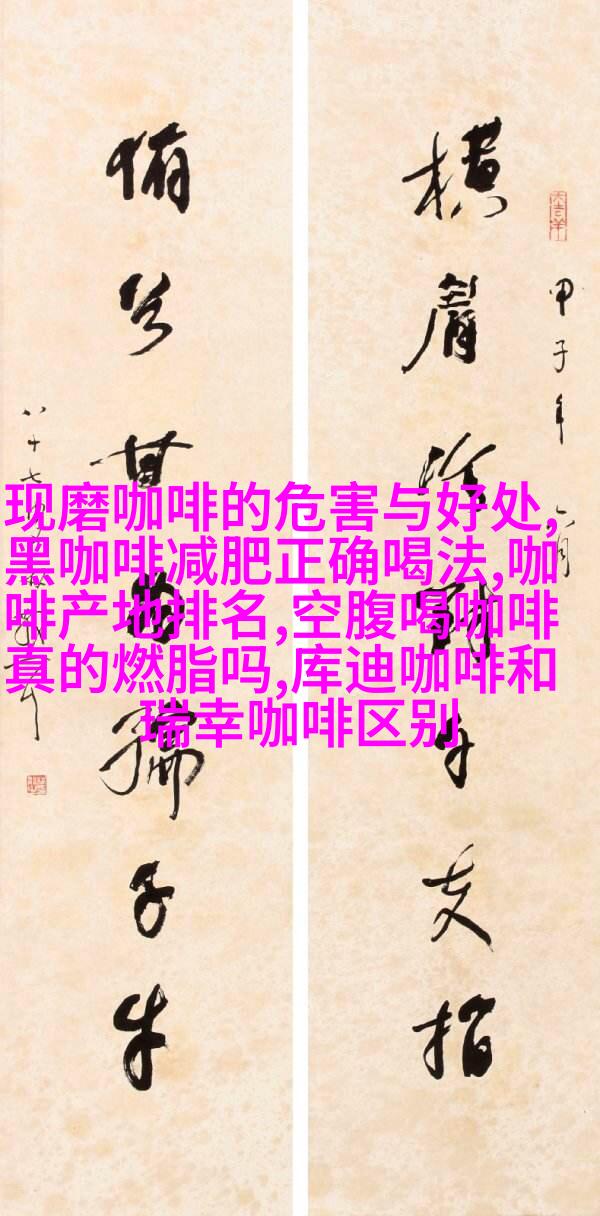 甲子年六月
横眉冷对千夫指
俯首甘为孺子牛
八十七
现磨咖啡的危害与好处,
黑咖啡减肥正确喝法,咖
啡产地排名,空腹喝咖啡
真的燃脂吗,库迪咖啡和
瑞幸咖啡区别
大吉羊